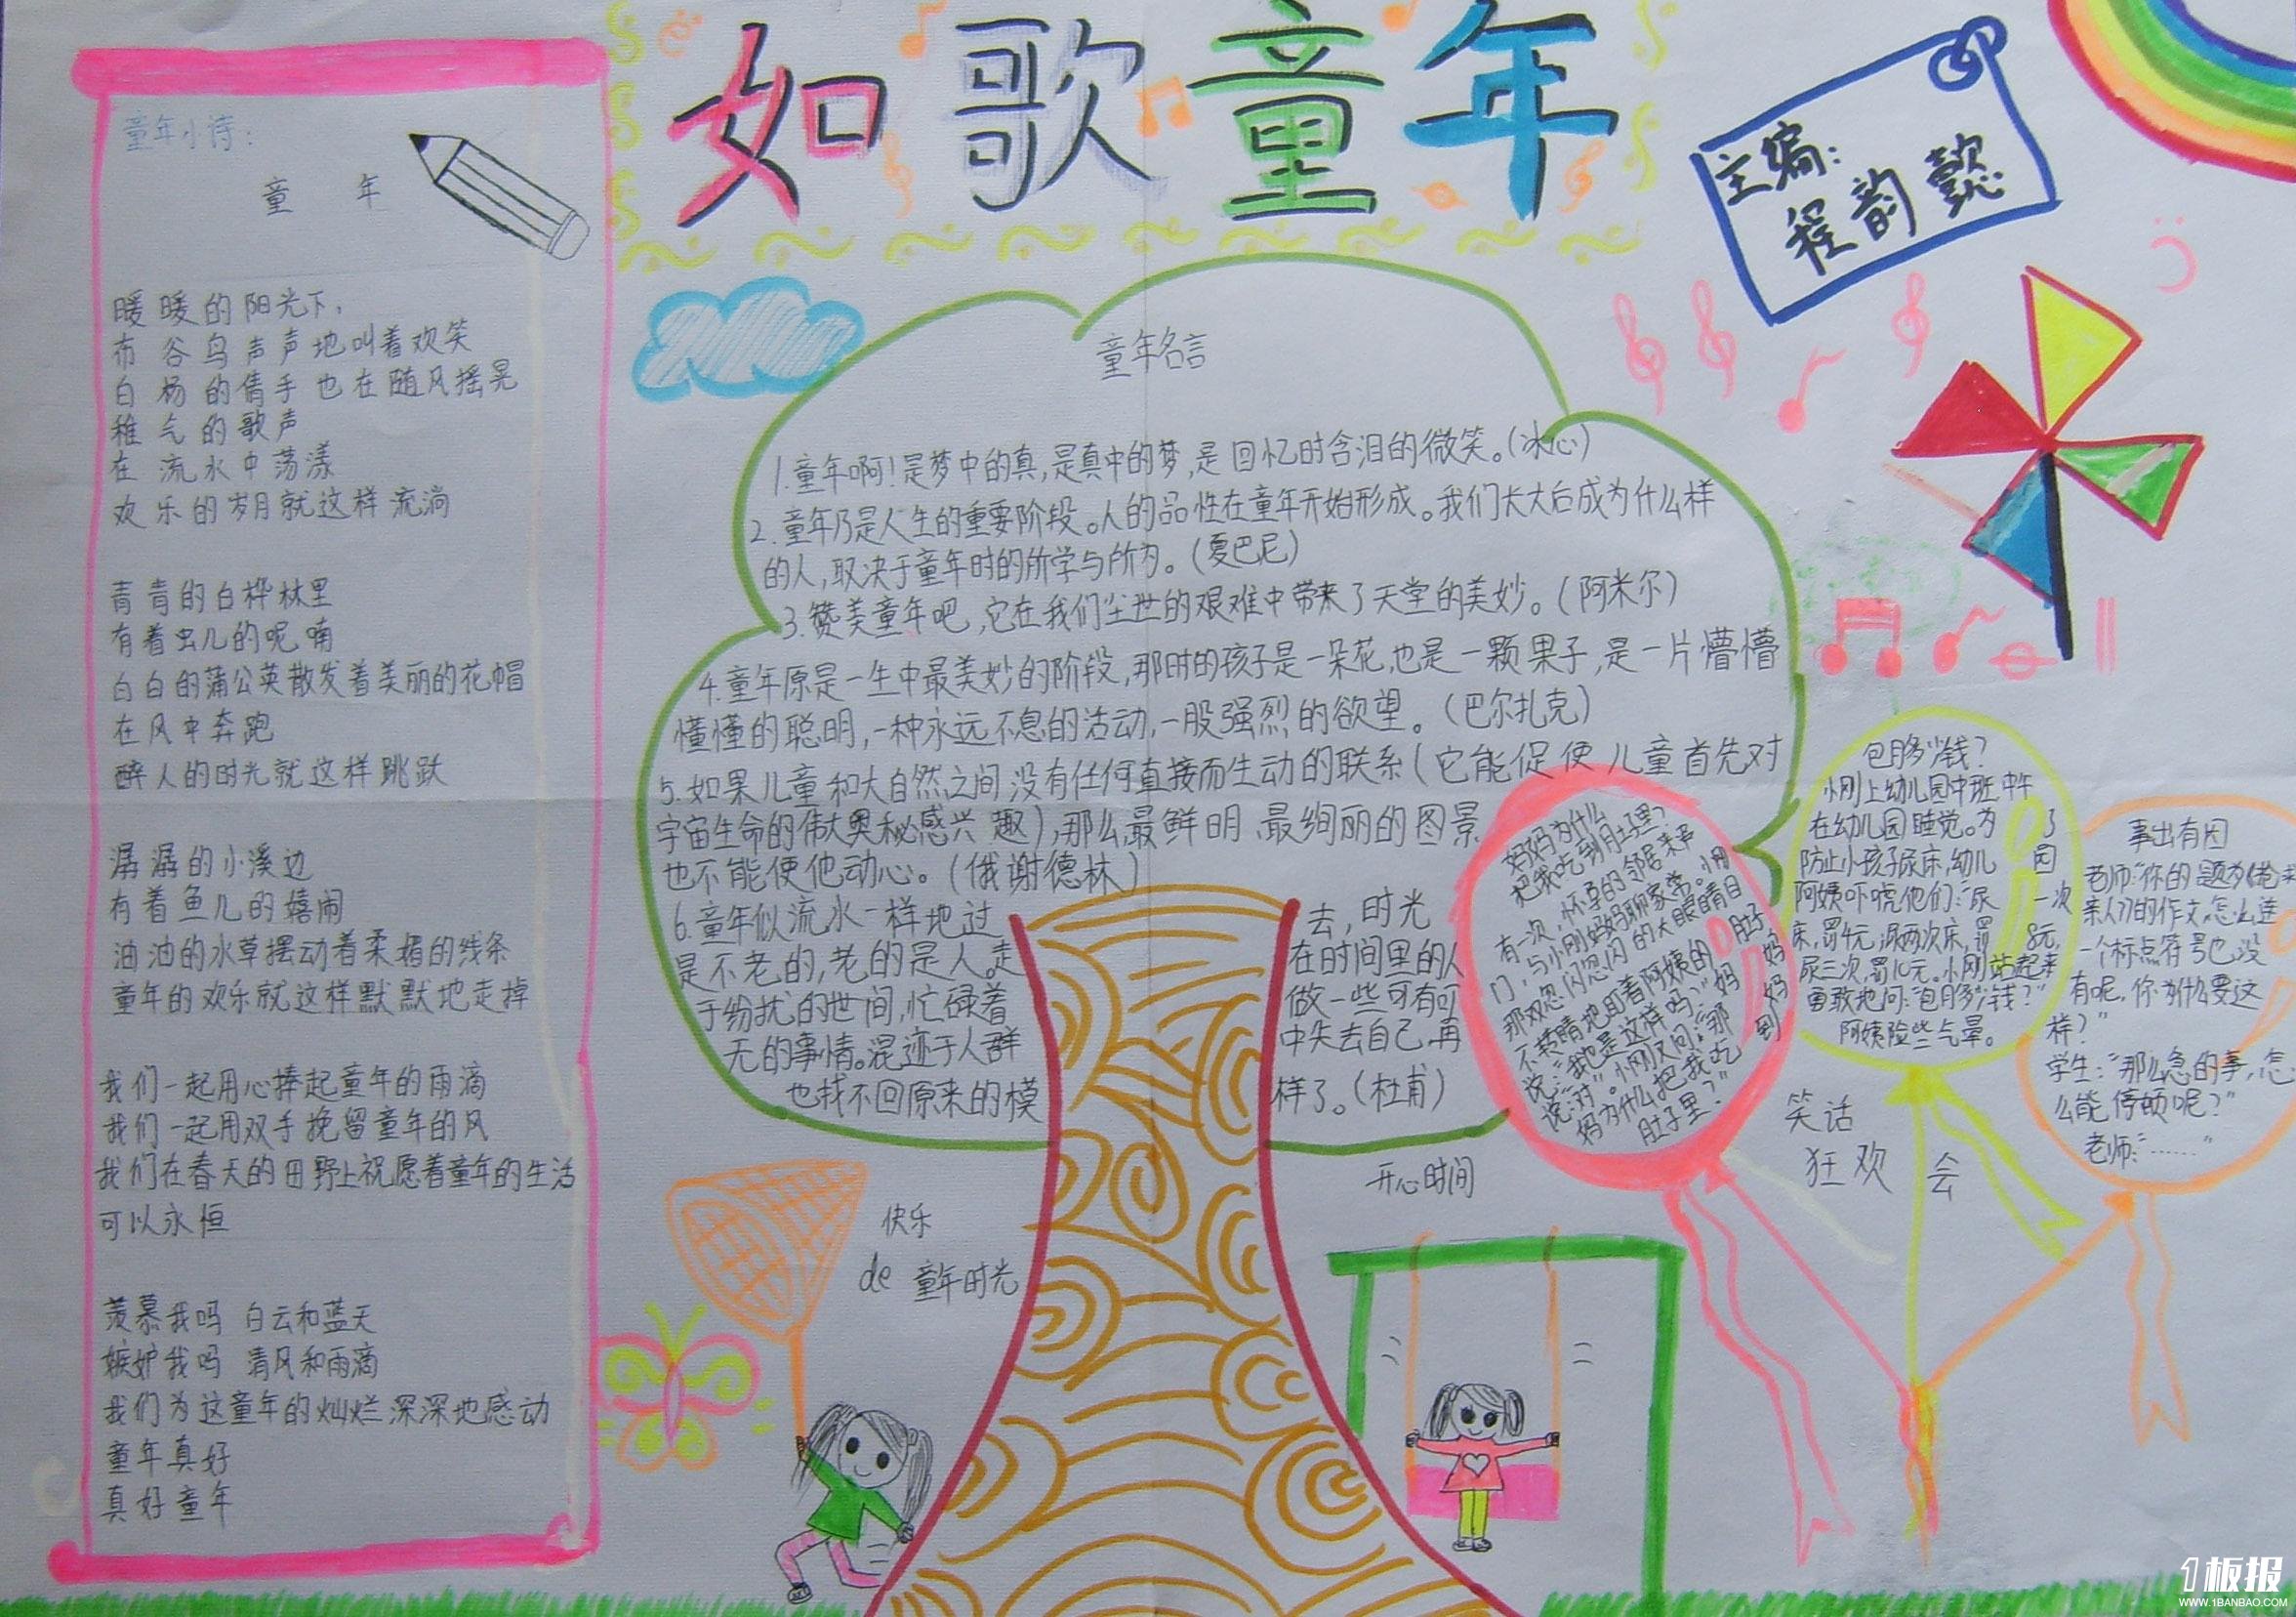 如歌童年
主编:
程韵懿
童年小诗:
童 年
暖暖的阳光下,
布谷鸟声声地叫着欢笑
白杨的倩手也在随风摇晃
稚气的歌声
在流水中荡漾
欢乐的岁月就这样流淌
青青的白桦林里
有着虫儿的呢喃
白白的蒲公英散发着美丽的花帽
在风中奔跑
醉人的时光就这样跳跃
潺潺的小溪边
有着鱼儿的嬉闹
油油的水草摆动着柔媚的线条
童年的欢乐就这样默默地走掉
我们一起用心捧起童年的雨滴
我们一起用双手挽留童年的风
我们在春天的田野上祝愿着童年的生活
可以永恒
羡慕我吗 白云和蓝天
嫉妒我吗 清风和雨滴
我们为这童年的灿烂深深地感动
童年真好
真好童年
童年名言
1.童年啊!是梦中的真,是真中的梦,是回忆时含泪的微笑。(冰心)
2.童年乃是人生的重要阶段。人的品性在童年开始形成。我们长大后成为什么样
的人,取决于童年时的所学与所为。(夏巴尼)
3.赞美童年吧,它在我们尘世的艰难中带来了天堂的美妙。(阿米尔)
4.童年原是一生中最美妙的阶段,那时的孩子是一朵花,也是一颗果子,是一片懵懵
懂懂的聪明,一种永远不息的活动,一股强烈的欲望。(巴尔扎克)
5.如果儿童和大自然之间没有任何直接而生动的联系(它能促使儿童首先对
宇宙生命的伟大奥秘感兴趣),那么最鲜明、最绚丽的图景
也不能使他动心。(俄谢德林)
6.童年似流水一样地过去,时光
是不老的,老的是人。走在时间里的人
于纷扰的世间,忙碌着做一些可有可
无的事情。混迹于人群中失去自己,再
也找不回原来的模样了。(杜甫)
妈妈为什么
把我吃到肚子里?
有一次,怀孕的邻居来串
门,与小刚妈妈聊家常。小刚
那双忽闪忽闪的大眼睛目
不转睛地盯着阿姨的肚子
说:"我也是这样吗?"妈妈
说:"对"。小刚又问:"那妈
妈为什么把我吃到
肚子里?"
包月多少钱?
小刚上幼儿园中班,中午
在幼儿园睡觉。为了
防止小孩子尿床,幼儿园
阿姨吓唬他们:"尿一次
床,罚4元,尿两次床,罚8元,
尿三次,罚12元。小刚站起来
勇敢地问:"包月多少钱?"
阿姨险些气晕。
事出有因
老师:"你的题为《
亲人》的作文,怎么连
一个标点符号也没
有呢,你为什么要这
样?"
学生:"那么急的事,怎
么能停顿呢?"
老师:"……"
笑话
狂欢会
开心时间
快乐
de 童年时光
1板报
WWW.1BANBAO.COM